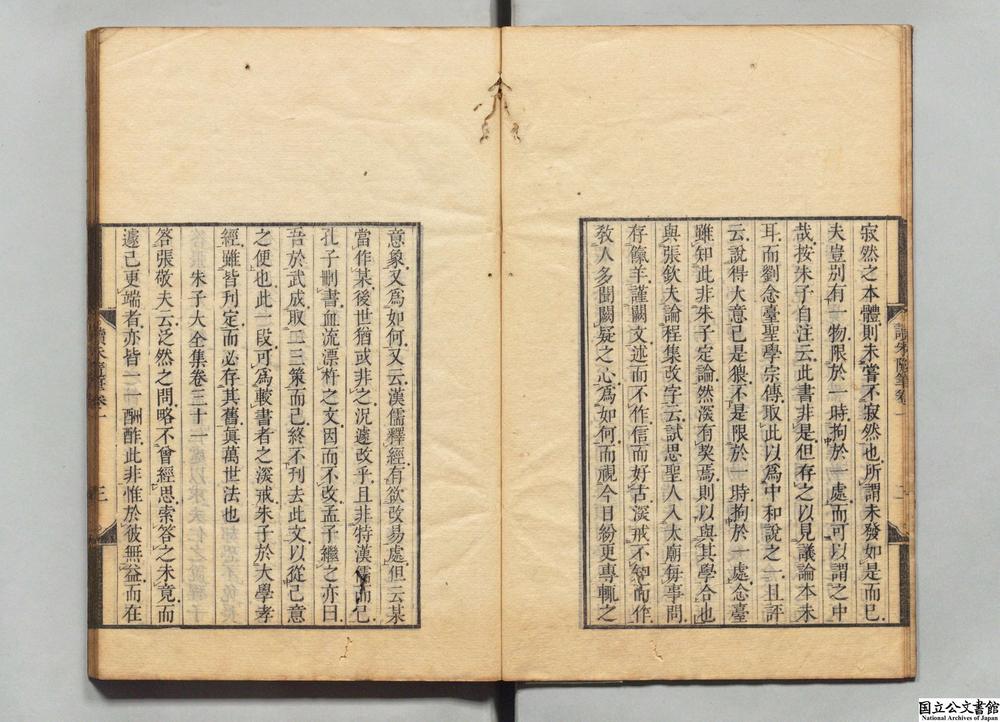 寂然之本體則未嘗不寂然也所謂未發如是而已
夫豈別有一物限於一時拘於一處而可以謂之中
哉按朱子自注云此書非是但存之以見議論本末
耳而劉念臺聖學宗傳取此以爲中和說之一且評
云說得大意已是猥不是限於一時拘於一處念臺
雖知此非朱子定論然深有契焉則以與其學合也
與張欽夫論程集改字云試思聖人入太廟每事問
存餼羊謹闕文述而不作信而好古深戒不知而作
教人多聞闕疑之心爲如何而視今日紛更專輒之
讀朱隨筆卷一
二
意象又爲如何又云漢儒釋經有欲改易處但云某
當作某後世猶或非之況遽改乎且非特漢儒而已
孔子刪書血流漂杵之文因而不改孟子繼之亦曰
吾於武成取二三策而已終不刊去此文以從己意
之便也此一段可爲較書者之深戒朱子於大學孝
經雖皆刊定而必存其舊眞萬世法也
朱子大全集卷三十一
答張敬夫云泛然之問略不曾經思索答之未竟而
遽已更端者亦皆一一酬酢此非惟於彼無益而在
讀朱隨筆卷一
三
国立公文書館
National Archives of Japan